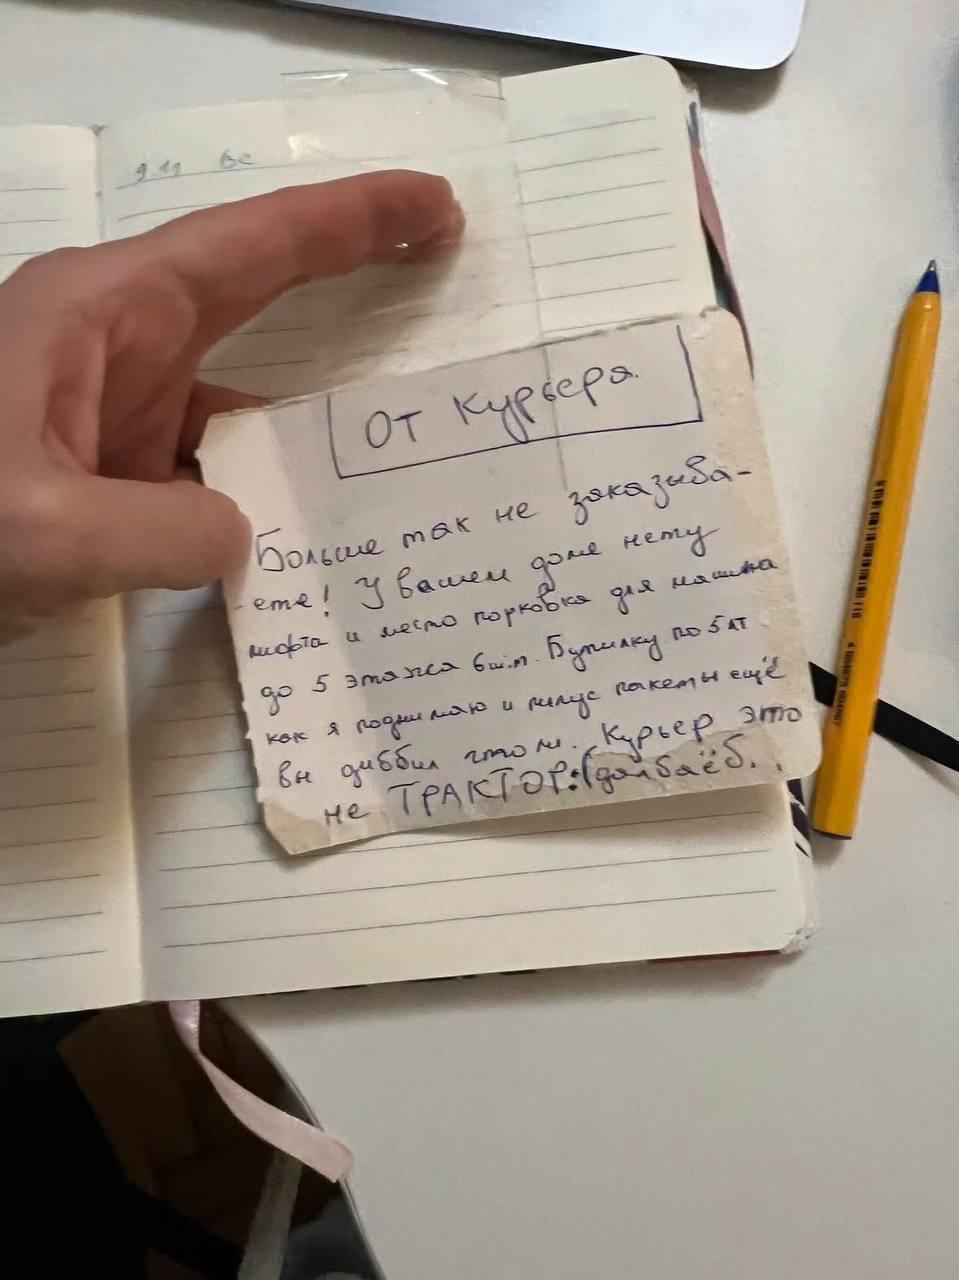 9.11 вс
От Курьера.
Больше так не заказыва-
-ете! У вашем доме нету
лифта и место порковка для машина
до 5 этажа 6 шт. Бутилку по 5 лт
как я поднимаю и плюс пакеты ещё
вы диббил што ли. Курьер это
не ТРАКТОР:(далбаёб..